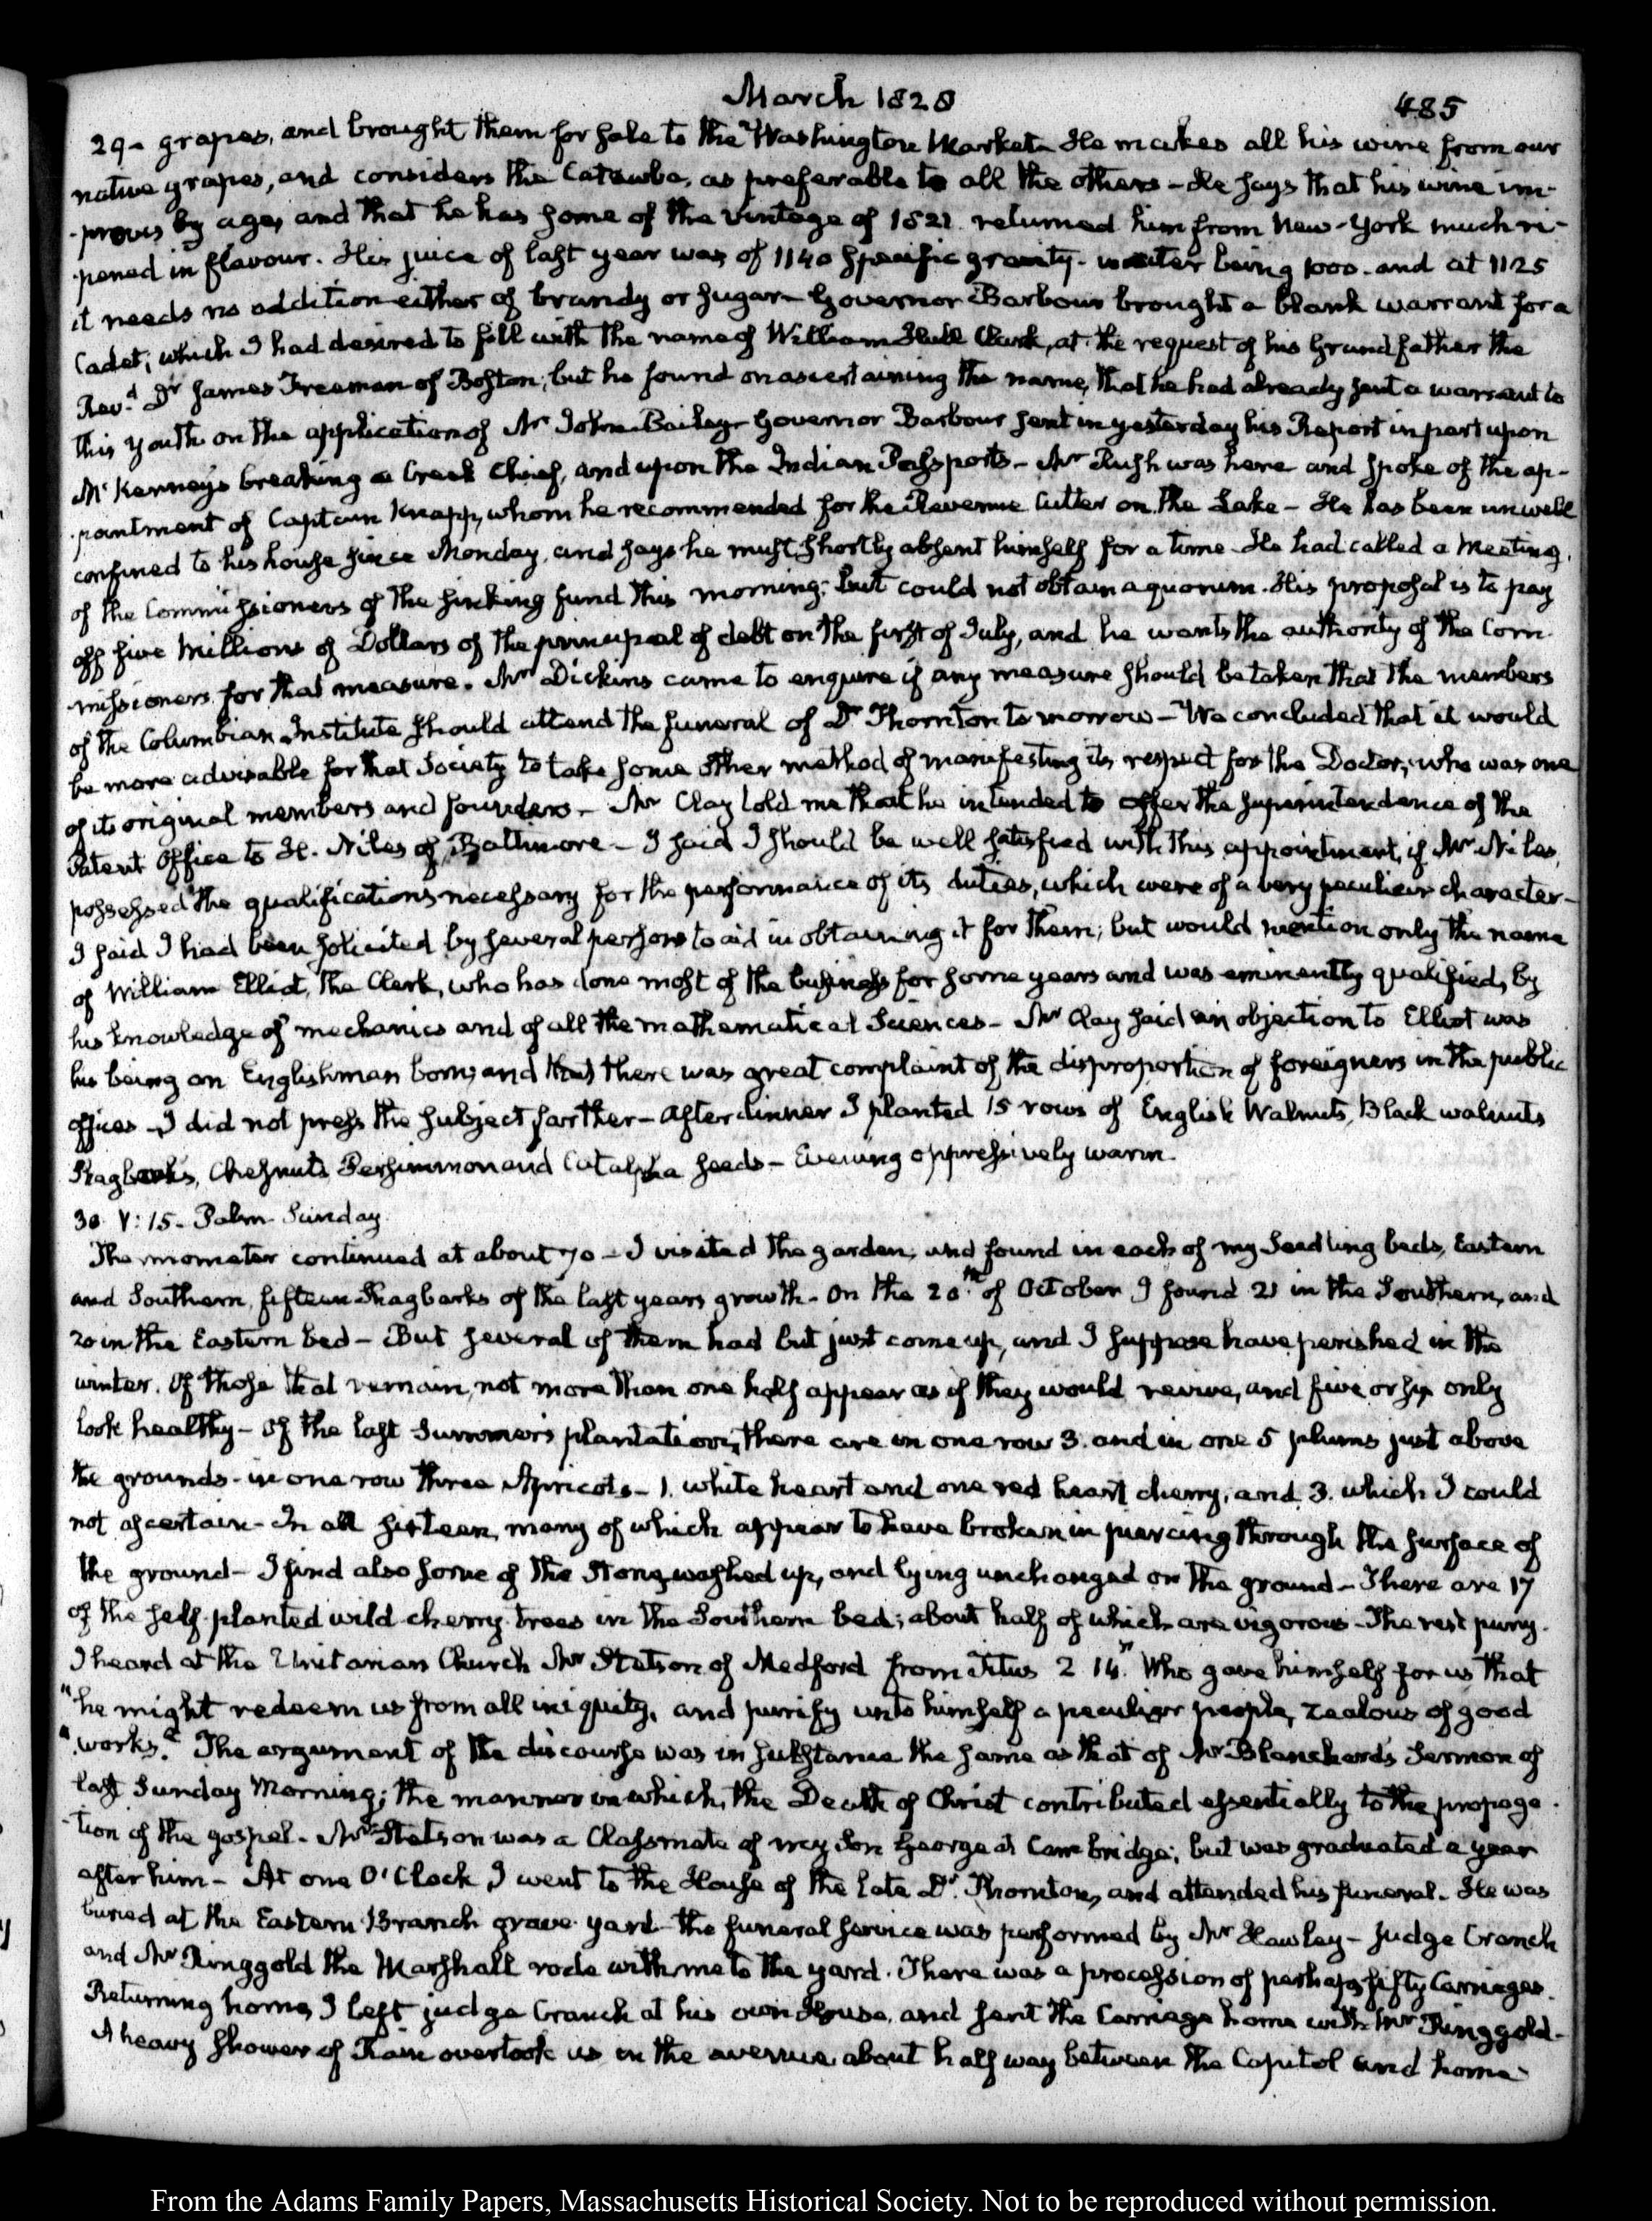 March 1828 485
29 - grapes, and brought them for sale to the Washington Market. He makes all his wine from our
native grapes, and considers the Catawba, as preferable to all the others - He says that his wine im-
-proves by age, and that he has some of the vintage of 1821 returned him from New-York much ri-
-pened in flavour. His juice of last year was of 1140 specific gravity. water being 1000. and at 1125
it needs no addition either of brandy or sugar - Governor Barbour brought a blank warrant for a
Cadet; which I had desired to fill with the name of William Hull Clark, at the request of his Grandfather the
Revd. Dr James Freeman of Boston; but he found on ascertaining the name, that he had already sent a warrant to
this youth on the application of Mr John Bailey - Governor Barbour sent in yesterday his Report in part upon
McKenney's breaking a Creek Chief, and upon the Indian Passports - Mr Rush was here and spoke of the ap-
-pointment of Captain Knapp, whom he recommended for the Revenue Cutter on the Lake - He has been unwell
confined to his house since Monday, and says he must shortly absent himself for a time - He had called a Meeting,
of the Commissioners of the sinking fund this morning; but could not obtain a quorum. His proposal is to pay
off five Millions of Dollars of the principal of debt on the first of July, and he wants the authority of the Com-
-missioners for that measure. Mr Dickins came to enquire if any measure should be taken that the members
of the Columbian Institute should attend the funeral of Dr Thornton to morrow - We concluded that it would
be more advisable for that Society to take some other method of manifesting its respect for the Doctor, who was one
of its original members and founders - Mr Clay told me that he intended to offer the superintendence of the
Patent Office to H. Niles of Baltimore - I said I should be well satisfied with this appointment, if Mr Niles,
possessed the qualifications necessary for the performance of its duties, which were of a very peculiar character -
I said I had been solicited by several persons to aid in obtaining it for them; but would mention only the name
of William Elliot, the Clerk, who has done most of the business for some years and was eminently qualified, by
his knowledge of mechanics and of all the mathematical Sciences - Mr Clay said an objection to Elliot was
his being an Englishman born; and that there was great complaint of the disproportion of foreigners in the public
offices - I did not press the subject farther - After dinner I planted 15 rows of English Walnuts, Black walnuts
Shagbarks, Chesnuts Persimmon and Catalpha seeds - Evening oppressively warm.
30 V: 15. Palm Sunday.
Thermometer continued at about 70 - I visited the garden, and found in each of my Seedling beds, Eastern
and Southern, fifteen Shagbarks of the last years growth. On the 20th of October I found 21 in the Southern, and
20 in the Eastern bed - But several of them had but just come up, and I suppose have perished in the
winter. Of those that remain, not more than one half appear as if they would revive, and five or six only
look healthy - Of the last Summer's plantation, there are in one row 3. and in one 5 plums just above
the ground - in one row three Apricots - 1. white heart and one red heart cherry, and 3. which I could
not ascertain - In all sixteen, many of which appear to have broken in piercing through the surface of
the ground - I find also some of the Stones washed up, and lying unchanged on the ground - There are 17
of the self-planted wild cherry trees in the Southern bed; about half of which are vigorous - The rest puny.
I heard at the Unitarian Church Mr Stetson of Medford from Titus 2 14. "Who gave himself for us that
"he might redeem us from all iniquity, and purify unto himself a peculiar people, zealous of good
"works." The argument of the discourse was in substance the same as that of Mr Blanchard's Sermon of
last Sunday Morning; the manner in which, the Death of Christ contributed essentially to the propaga-
-tion of the gospel. Mr Stetson was a Classmate of my Son George at Cambridge; but was graduated a year
after him - At one O'Clock, I went to the House of the late Dr. Thornton, and attended his funeral. He was
buried at the Eastern Branch grave yard - the funeral service was performed by Mr Hawley - Judge Cranch
and Mr Ringgold the Marshall rode with me to the yard. There was a procession of perhaps fifty Carriages.
Returning home, I left judge Cranch at his own House, and sent the Carriage home with Mr Ringgold -
A heavy shower of Rain overtook us in the avenue about half way between the Capitol and home
From the Adams Family Papers, Massachusetts Historical Society. Not to be reproduced without permission.